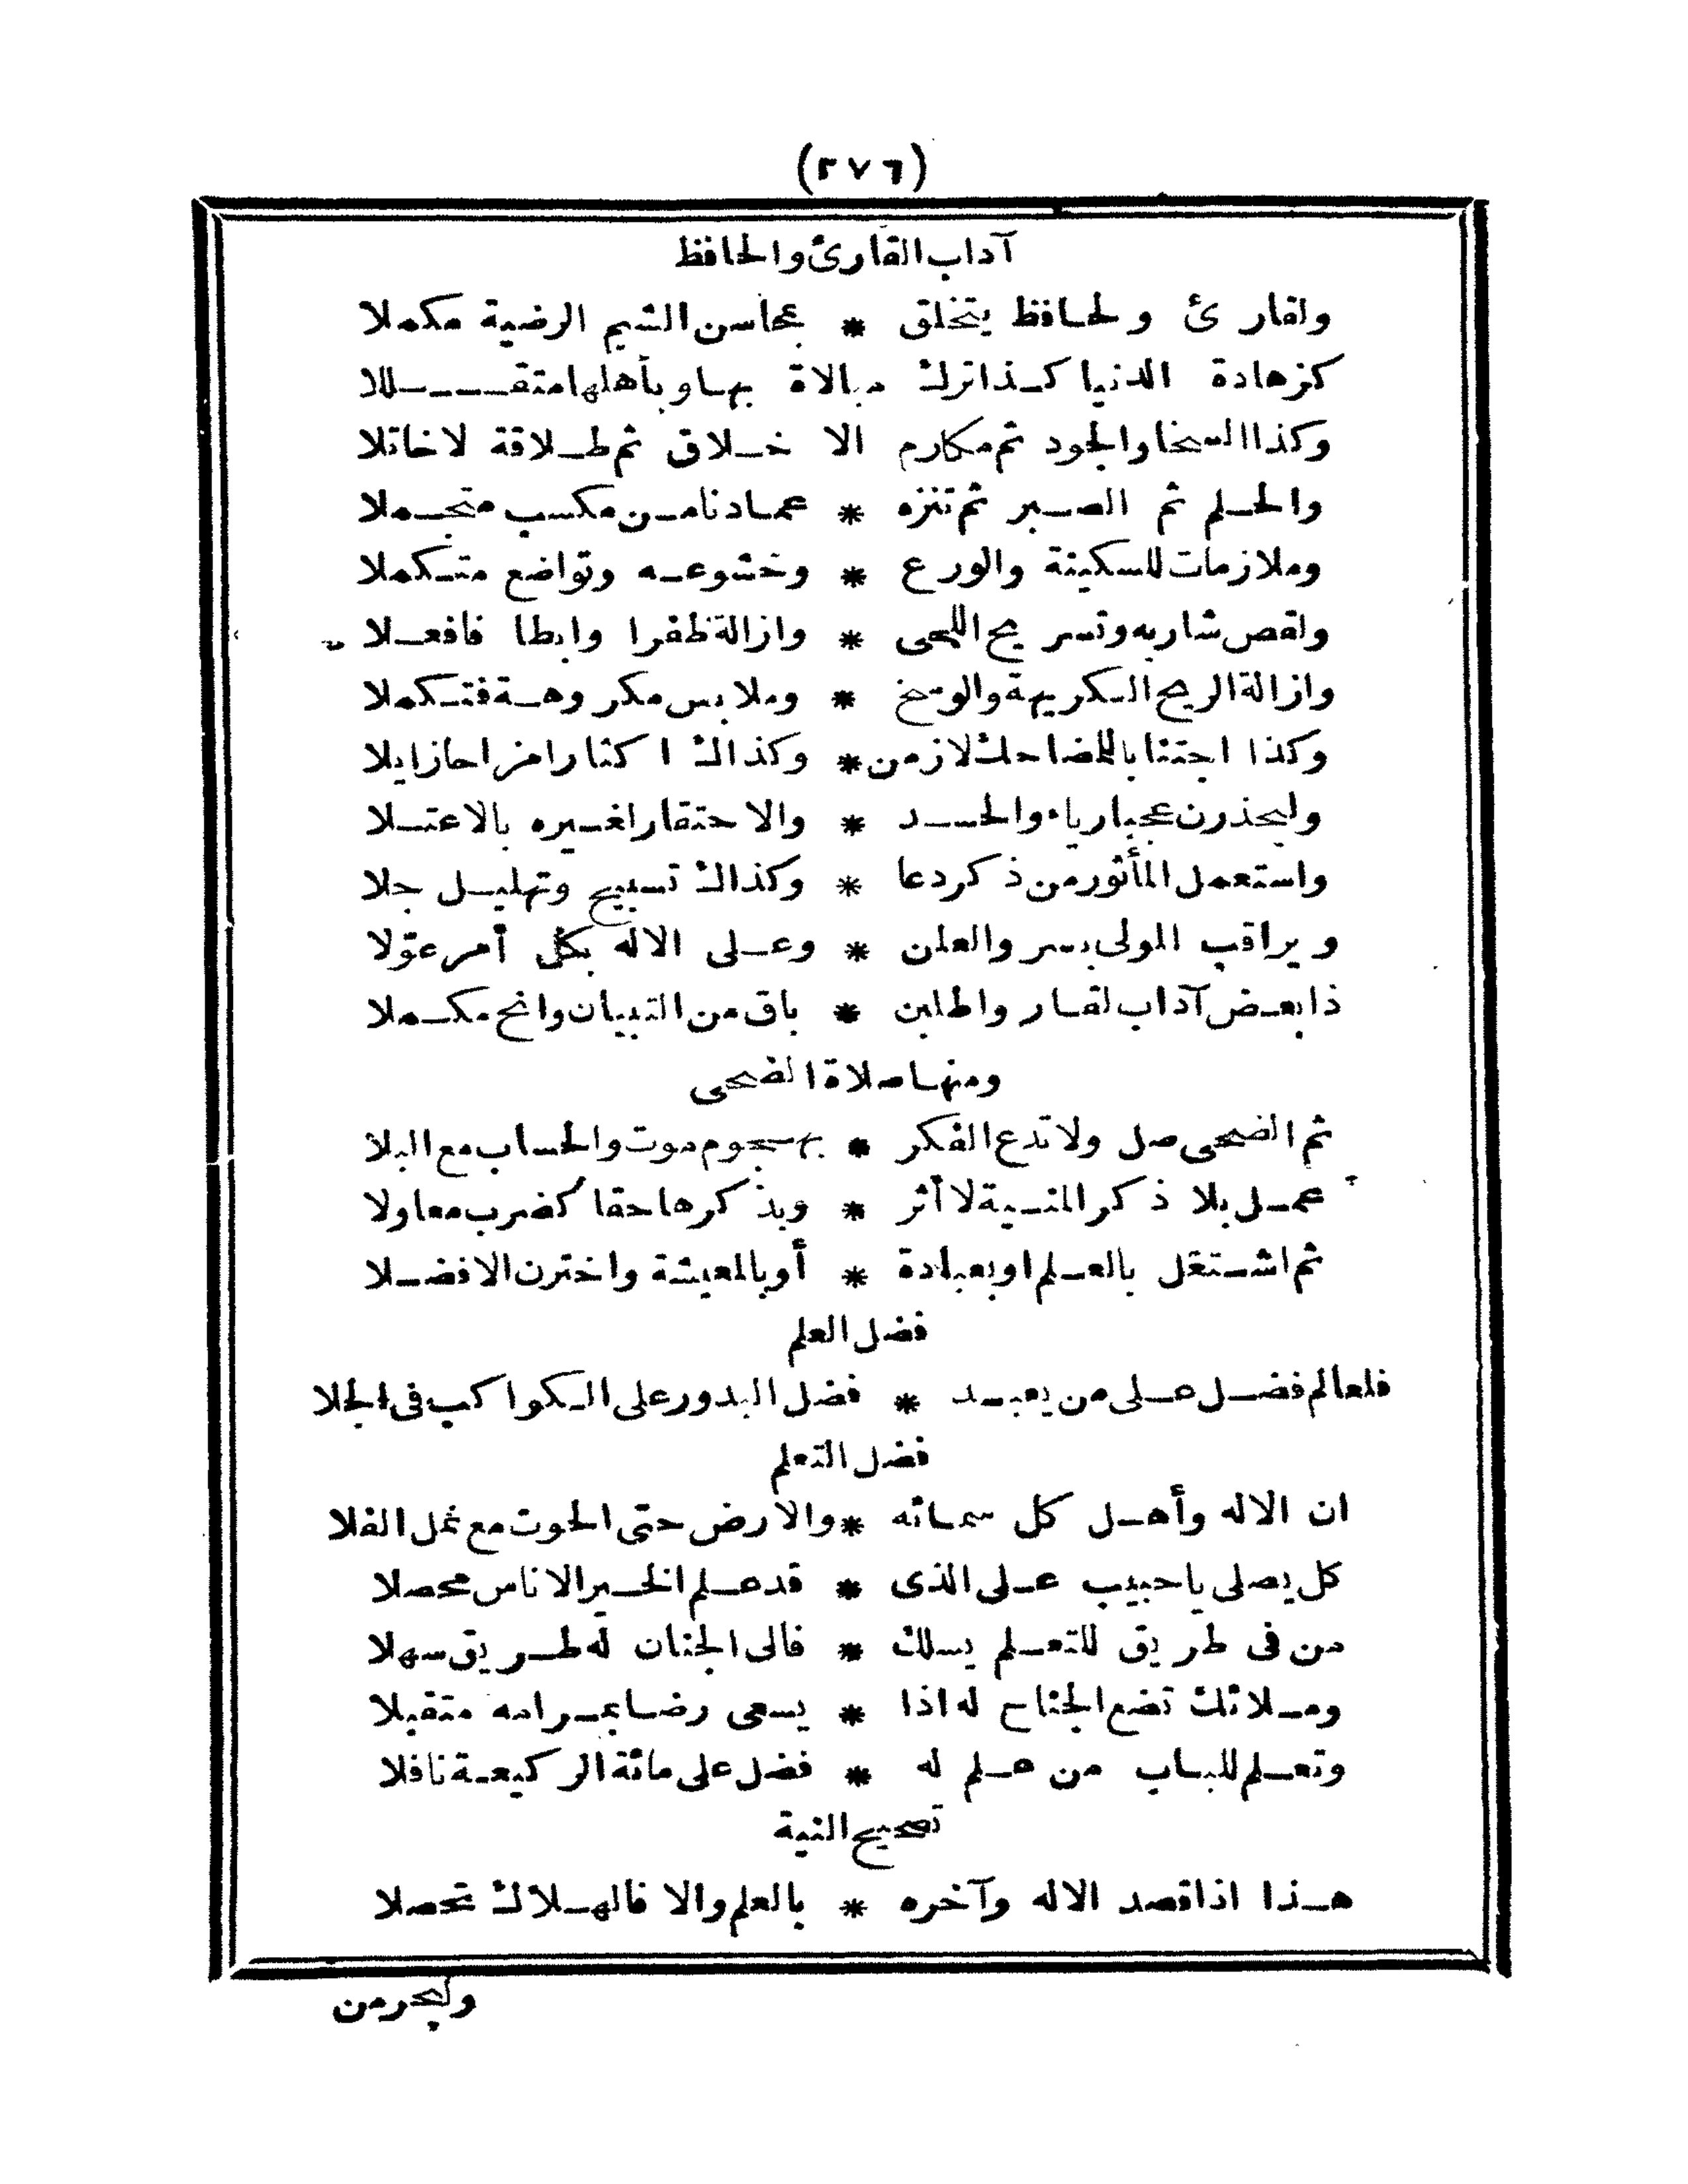 (٢٧٦)
آداب القارئ والحافظ
ولقارئ ولحافظ يتخلق * بمحاسن الشيم الرضية مكملا
كزهادة الدنيا كذا ترك مبالاة بها وبأهلها متقللا
وكذا السخا والجود ثم مكارم الا خلاق ثم طلاقة لا خاتلا
والحلم ثم الصبر ثم تنزه * عما دنا من مكسب متجملا
وملازمات للسكينة والورع * وخشوعه وتواضع متكملا
ولقص شاربه وتسريح اللحى * وازالة ظفرا وابطا فافعلا
وازالة الريح الكريهة والوسخ * وملابس مكروهة فتكملا
وكذا اجتنابا للمضاحك لازمن * وكذاك اكثارا مزاحا زايلا
وليحذرن عجبا رياء والحسد * والاحتقار لغيره بالاعتلا
واستعمل المأثور من ذكر دعا * وكذاك تسبيح وتهليل جلا
ويراقب المولى بسر والعلن * وعلى الاله بكل أمر عوّلا
ذا بعض آداب لقار واطلبن * باق من التبيان وانح مكملا
ومنها صلاة الضحى
ثم الضحى صل ولا تدع الفكر * بهجوم موت والحساب مع البلا
عمل بلا ذكر المنية لا أثر * وبذكرها حقا كضرب معاولا
ثم اشتغل بالعلم او بعبادة * أو بالمعيشة واخترن الافضلا
فضل العلم
فلعالم فضل على من يعبد * فضل البدور على الكواكب فى الجلا
فضل التعلم
ان الاله وأهل كل سمائه * والارض حتى الحوت مع نمل الفلا
كل يصلى يا حبيب على الذى * قد علم الخير الاناس محصلا
من فى طريق للتعلم يسلك * فالى الجنان له طريق سهلا
وملائك تضع الجناح له اذا * يسعى رضا بمرامه متقبلا
وتعلم للباب من علم له * فضل على مائة الركيعة نافلا
تصحيح النية
هذا اذا قصد الاله وآخره * بالعلم والا فالهلاك تحصلا
وليحرمن